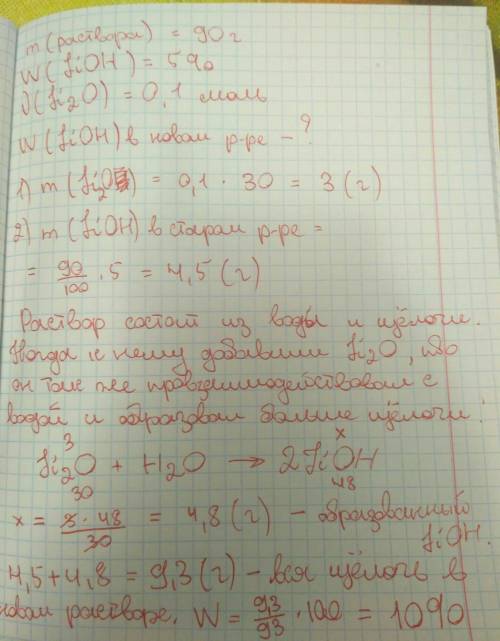 m(раствора) = 90 г
W(LiOH) = 5%
ν(Li2O) = 0,1 моль
W(LiOH) в новом р-ре - ?
1) m(Li2O) = 0,1 · 30 = 3 (г)
2) m(LiOH) в старом р-ре =
= 90/100 · 5 = 4,5 (г)
Раствор состоит из воды и щёлочи.
Когда к нему добавили Li2O, то
он тоже провзаимодействовал с
водой и образовал больше щёлочи:
3 x
Li2O + H2O → 2LiOH
30 48
x = 3·48/30 = 4,8 (г) - образованный
LiOH.
4,5+4,8 = 9,3 (г) - вся щёлочь в
новом растворе. W = 9,3/93 · 100 = 10%